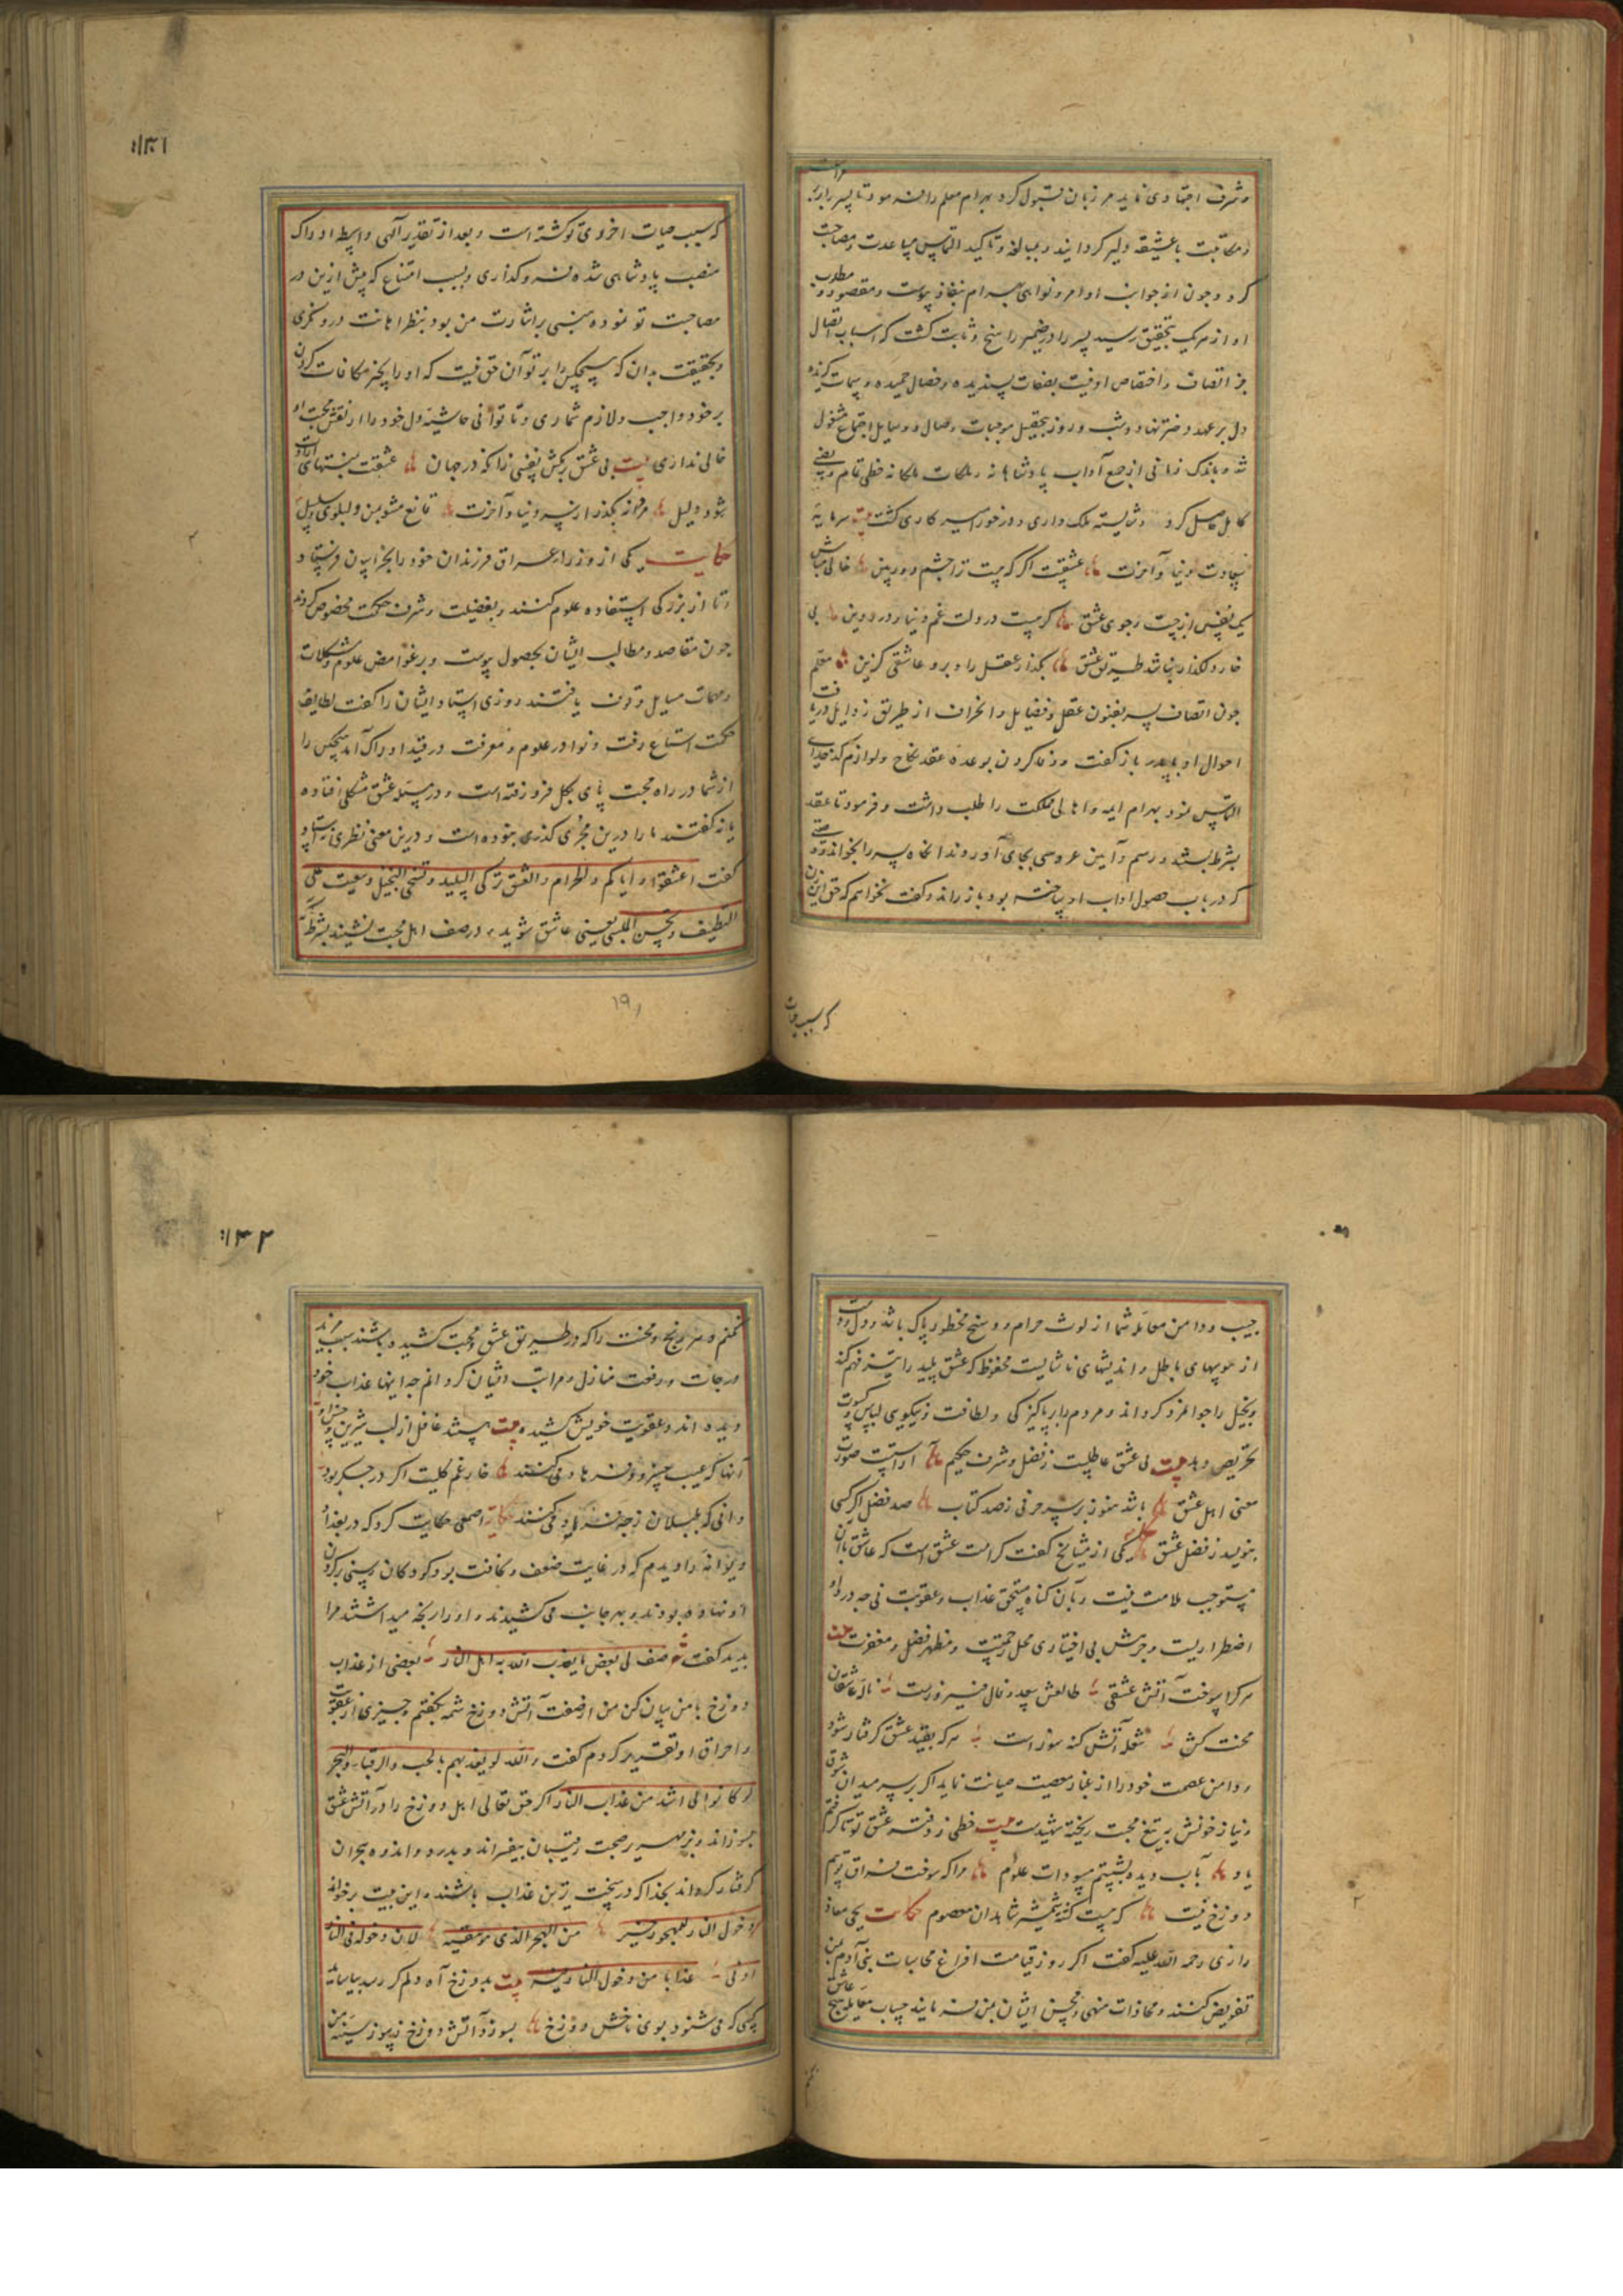 و شرف اجتهادی نماید مرزبان قبول کرد بهرام معلم را فرمود تا پسر را بر
و مکاتبت با عشیقه دلیر گردانید و بمبالغه و تأکید التماس مباعدت و مصاحبت
کرد و چون از جوانب اوامر و نواهی بهرام بنفاذ پیوست و مقصود و مطلوب
او از هر یک بتحقیق رسید پسر را در ضمیر راسخ و ثابت گشت که اسباب اتصال
جز اتصاف و اختصاص او نیست بصفات پسندیده و خصال حمیده و سمات گزیده
دل بر عهد دختر نهاد و شب و روز بتحصیل موجبات وصال و وسایل اجتماع مشغول
شد و باندک زمانی از جمیع آداب پادشاهانه و ملکات ملکانه حظی تمام و نصیبی
کامل حاصل کرد و شایسته ملک داری و درخور اسیر کاری گشت بیت سرمایه
سعادت دنیا و آخرت عشقیت اگر هست ترا چشم دوربین خالی مباش
یک نفس از جست و جوی عشق گر هست در دلت غم دنیا و درد دین بی
خار و گلذار نباشد طریق عشق بگذار عقل را و برو عاشقی گزین معلم
چون اتصاف پسر بفنون عقل و فضایل و انحراف از طریق رذایل دریافت
احوال او با پدر باز گفت و وفا کردن بوعده عقد نکاح و لوازم کدخدایی
التماس نمود بهرام ایمه و اهالی مملکت را طلب داشت و فرمود تا عقد
بشرط ببستند و رسم و آیین عروسی بجای آوردند آنگاه پسر را بخواند و
که در باب حصول اداب او ساخته بود باز راند و گفت نخواهم که حق این زن
که سبب حیات
۱۳۱
که سبب حیات اخروی تو گشته است و بعد از تقدیر آلهی واسطه ادراک
منصب پادشاهی شده فرو گذاری و بسبب امتناع که پیش ازین در
مصاحبت تو نموده مبنی بر اشارت من بود بنظر اهانت درو نگری
و بحقیقت بدان که هیچکس را بر تو آن حق نیست که او را بخیر مکافات کردن
بر خود واجب و لازم شماری و تا توانی حاشیه دل خود را از نقش محبت او
خالی نداری بیت بی عشق برمکش نفسی زانکه در جهان عشقت بمنتهای ارادت
شود دلیل مردانه بگذر از سر دنیا و آخرت قانع مشو بمن و سلوی و سلسبیل
حکایت یکی از وزراء عراق فرزندان خود را بخراسان فرستاد
تا از بزرگی استفاده علوم کنند و بفضیلت و شرف حکمت مخصوص گردند
چون مقاصد و مطالب ایشان بحصول پیوست و بر غوامض علوم و مشکلات
و مهمات مسایل وقوف یافتند روزی استاد ایشان را گفت لطایف
حکمت استماع رفت و نوادر علوم و معرفت در قید ادراک آمد هیچکس را
از شما در راه محبت پای بگل فرو رفته است و در مسئله عشق مشکلی افتاده
یا نه گفتند ما را درین مجری گذری نبوده است و درین معنی نظری نه استاد
گفت اعشقوا و ایاکم و الحرام و العشق یزکی البلید و یسخی البخیل و یبعث علی
التنظیف و یحسن اللبس یعنی عاشق شوید و در صف اهل محبت نشینید بشرط آنکه
۱۹۱
جیب و دامن معامله شما از لوث حرام و وسخ محظور پاک باشد و دل و دست
از هوسهای باطل و اندیشهای ناشایست محفوظ که عشق پلید را تیزفهم کند
و بخیل را جوانمرد گرداند و مردم را بر پاکیزگی و لطافت و نیکویی لباس و کسوت
تحریص دهد بیت بی عشق عاطلیست ز فضل و شرف حکیم آراستست صورت
معنی اهل عشق باشد هنوز بر سر حرفی ز صد کتاب صد فصل اگر کسی
بنویسد ز فضل عشق حکایت یکی از مشایخ گفت کرامت عشق است که عاشق بآن
مستوجب ملامت نیست و بآن گناه مستحق عذاب و عقوبت نی چه درد او
اضطراریست و جرمش بی اختیاری محل رحمتیت و مظهر فضل و مغفرت بیت
هر کرا سوخت آتش عشقی طالعش سعد و فال فیروزست ناله عاشقان
محنت کش شعله آتش گنه سوزاست هر که بقید عشق گرفتار شود
و دامن عصمت خود را از غبار معصیت صیانت نماید اگر بر سر میدان شوق
و نیاز خونش به تیغ محبت ریخته شهیدست بیت خطی ز دفتر عشق تو تا گرفتم
یاد بآب دیده بشستم مسودات علوم مرا که سوخت فراق تو بیم
دوزخ نیست که هست کشته شمشیر شاهدان معصوم حکایت یحیی معاذ
رازی رحمه الله علیه گفت اگر روز قیامت افراغ محاسبات بنی آدم بمن
تفویض کنند و مجازات مسیء و محسن ایشان بمن فرمایند حساب معامله هیچ عاشق
۱۳۲
نکنم و هر رنج و محنت را که در طریق عشق و محبت کشیده باشند سبب مزید
درجات و رفعت منازل و مراتب ایشان گردانم چه اینها عذاب خود
دیده اند و عقوبت خویش کشیده بیت هستند غافل از لب شیرین و
آنها که عیب خسرو و فرهاد می کنند خار غم گلیست اگر در جگر بود
دانی که بلبلان ز چه فریاد می کنند حکایت اصمعی حکایت کرد که در بغداد
دیوانه را دیدم که در غایت ضعف و نحافت بود کودکان رسنی در گردن
او نهاده بودند و بهر جانب می کشیدند و او را رنجه میداشتند مرا
بدید گفت صف لی بعض ما یعذب الله به اهل النار بعضی از عذاب
دوزخ با من بیان کن من از صفت آتش دوزخ شمه بگفتم و چیزی از عقوبت
و احراق او تقریر کردم گفت والله لو یعذبهم بالحب والرقباء والهجر
لو کانوا لقی اشد من عذاب النار اگر حق تعالی اهل دوزخ را در آتش عشق
بسوزاند و بزمهریر صحبت رقیبان بیفسراند و بدرد و اندوه هجران
گرفتار گرداند بخدا که در سخت ترین عذاب باشند و این بیت برخواند
دخول النار للمهجور خیر من الهجر الذی هو یتقیه لان دخوله فی النار
ادنی عذابا من دخول النار فیه بیت بدوزخ آه دلم گر رسد بیاساید
کسی که می شنود بوی ناخش دوزخ بسوزد آتش دوزخ ز سوز سینه من